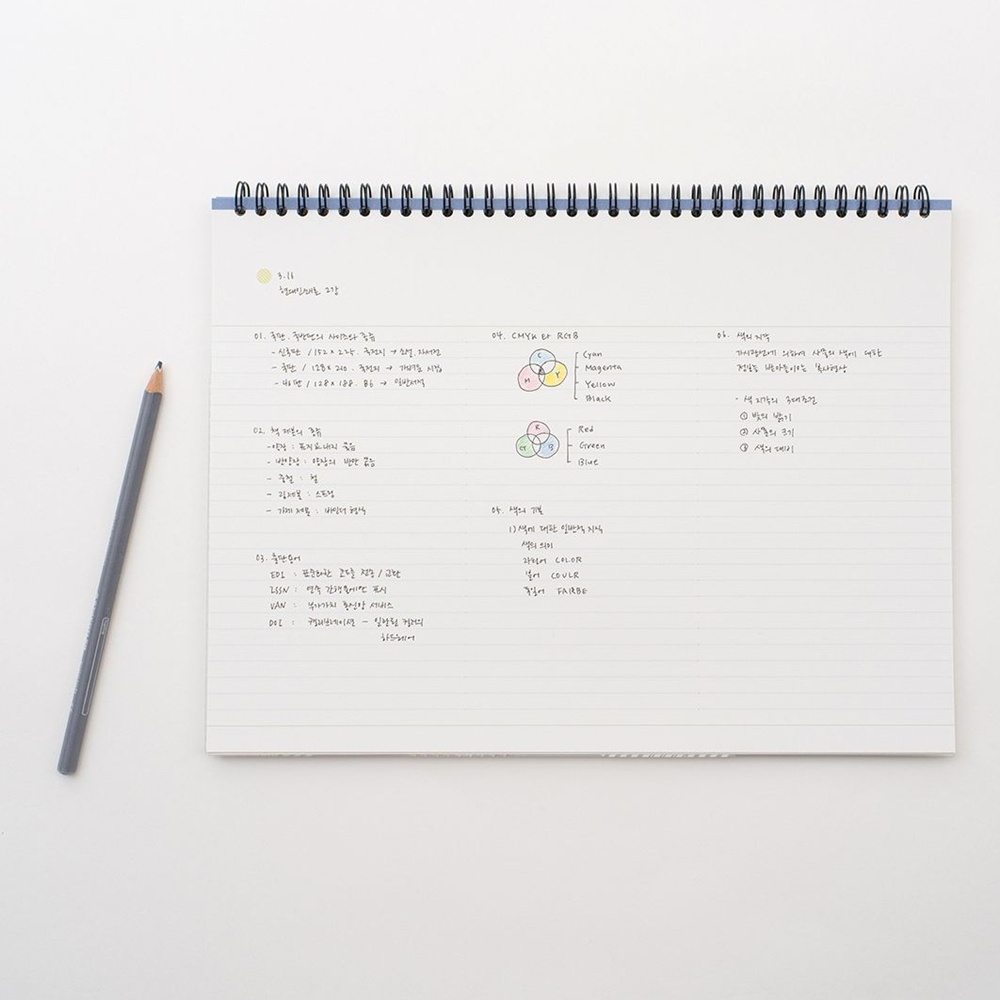 3.16
현대인쇄론 2강
01. 국판. 국반판의 사이즈와 종류
- 신국판 / 152 x 225. 국전지 → 소설. 자서전
- 국판 / 128 x 210. 국전지 →
- 46판 / 128 x 188. B6 → 일반서적
02. 책 제본의 종류
- 양장 : 표지와 내지 묶음
- 반양장 : 양장의 반만 묶음
- 중철 :
- 링제본 : 스프링
- 제본 : 바인더 형식
03. 출판용어
EDI : 표준화한 코드를 전송 / 교환
ISSN : 연속 간행물에만 표시
VAN : 부가가치 통신망 서비스
DOI : 컬러
04. CMYK 와 RGB
C
M Y
Cyan
Magenta
Yellow
Black
R
G B
Red
Green
Blue
05. 색의 기본
1) 색에 대한 일반적 지식
색의 의미
라틴어 COLOR
불어 COULR
독일어 FAIRBE
06. 색의 지각
가시광선에 의하여 사물의 색에 대한
- 색 지각의 3대조건
① 빛의 밝기
② 사물의 크기
③ 색의 대비